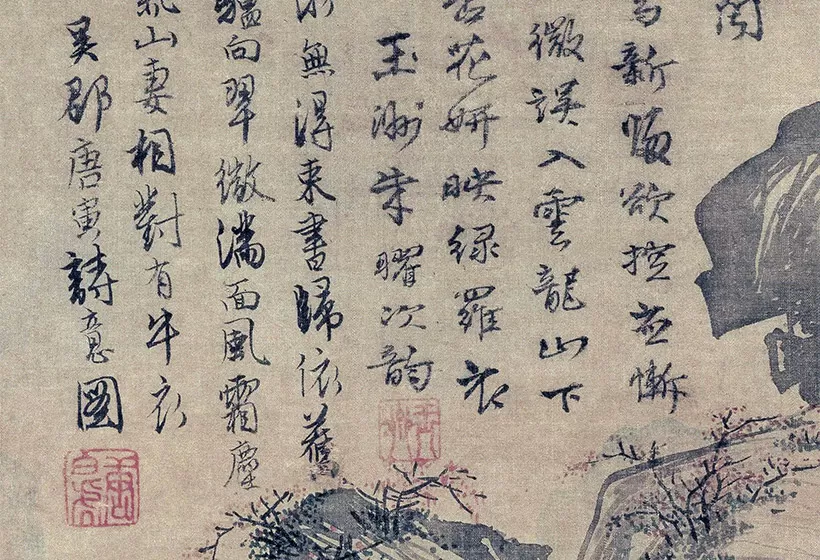 新欲控並慚
微誤入雲龍山下
花妍映綠羅衣
玉洲朱曜次韵
無得束書歸依舊
驢向翠微滿面風霜塵
山妻相對有牛衣
吳郡唐寅詩意圖